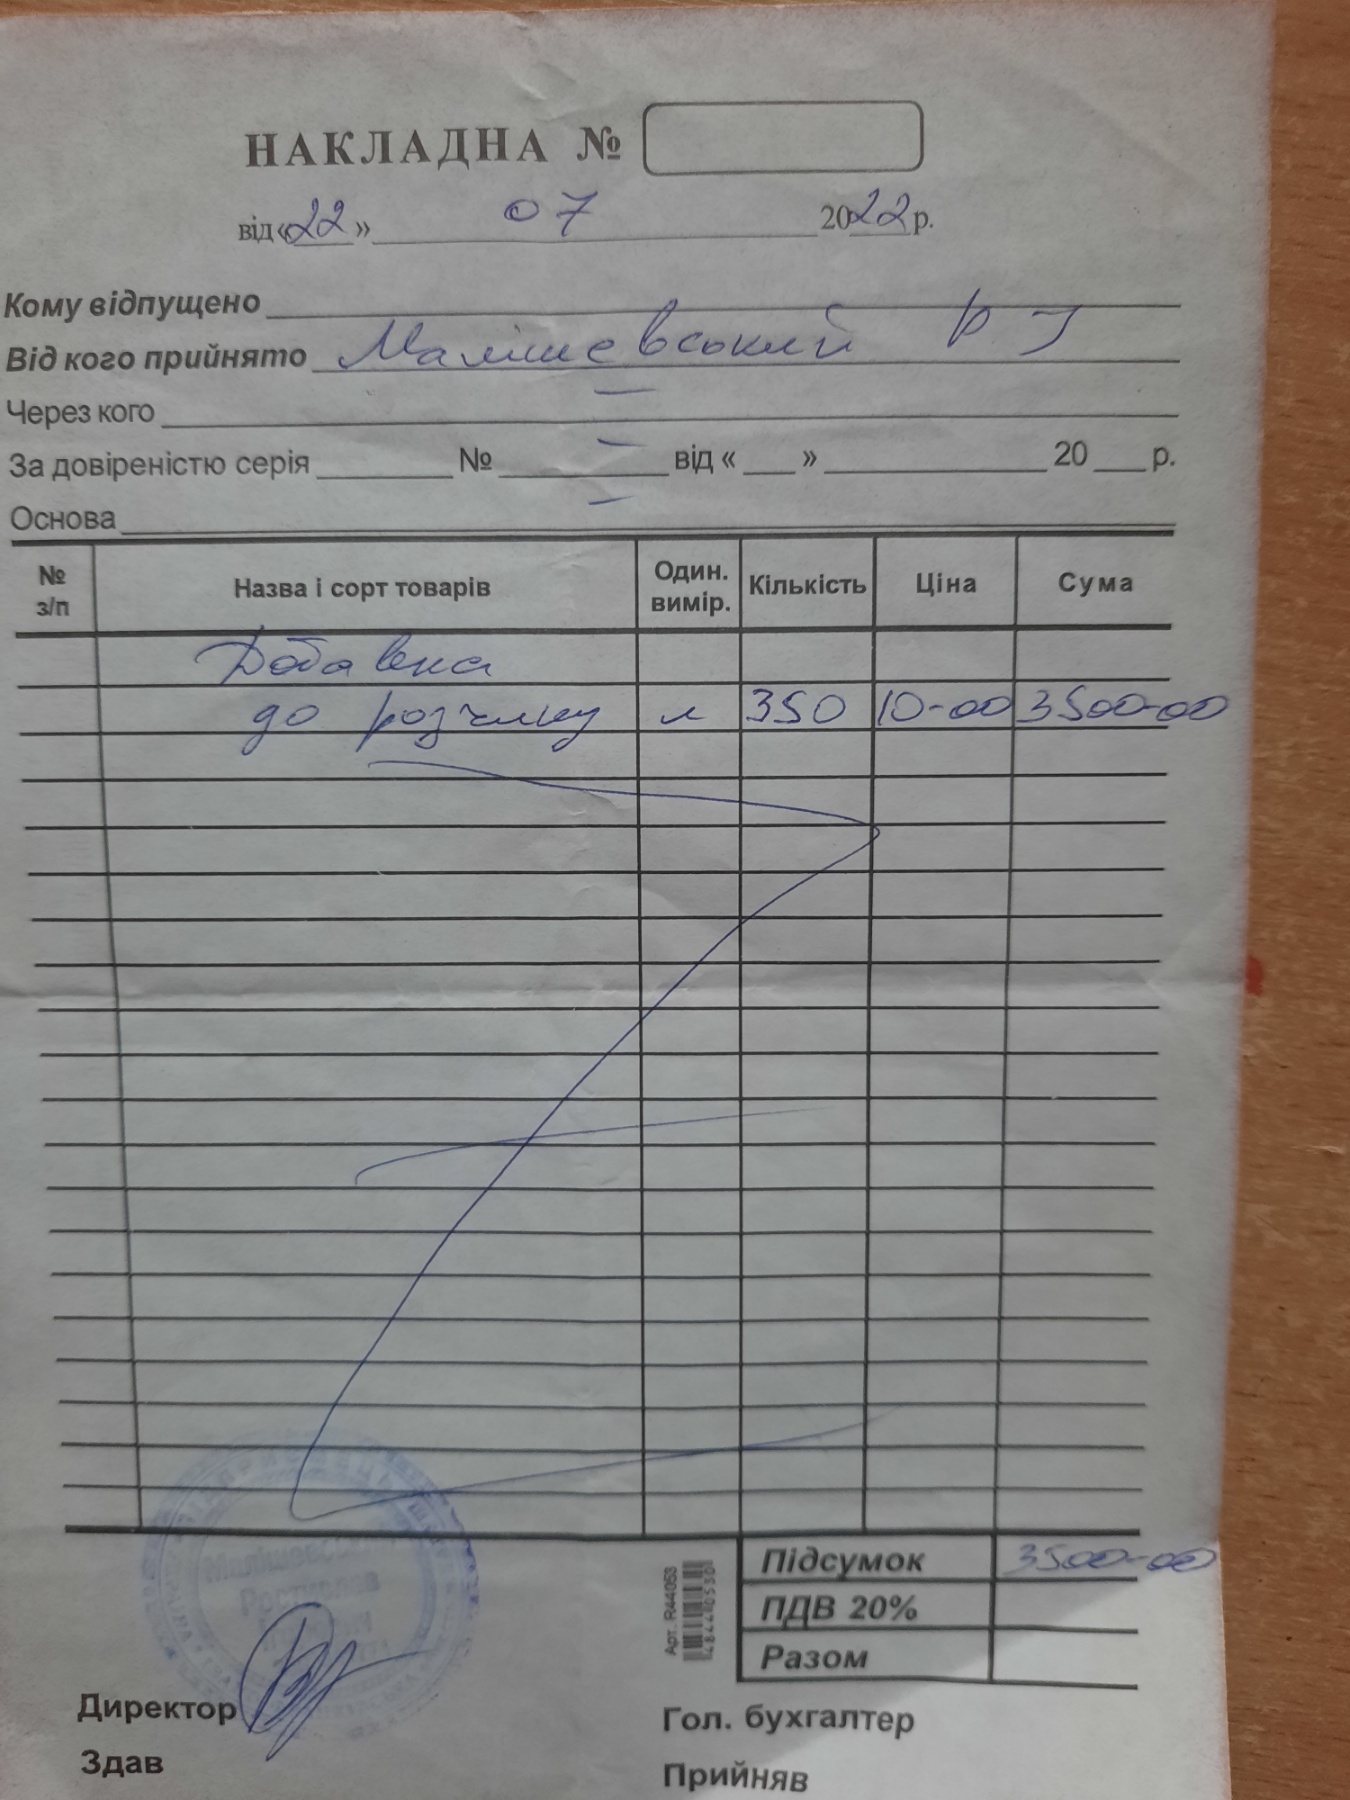 НАКЛАДНА №
від «22» 07 2022 р.
Кому відпущено
Від кого прийнято Малішевський Р І
Через кого —
За довіреністю серія № — від « » 20 р.
Основа —
№ з/п Назва і сорт товарів Один. вимір. Кількість Ціна Сума
Добавка
до розчину л 350 10-00 3500-00
Підсумок 3500-00
ПДВ 20%
Разом
Арт. R44053
Директор Гол. бухгалтер
Здав Прийняв